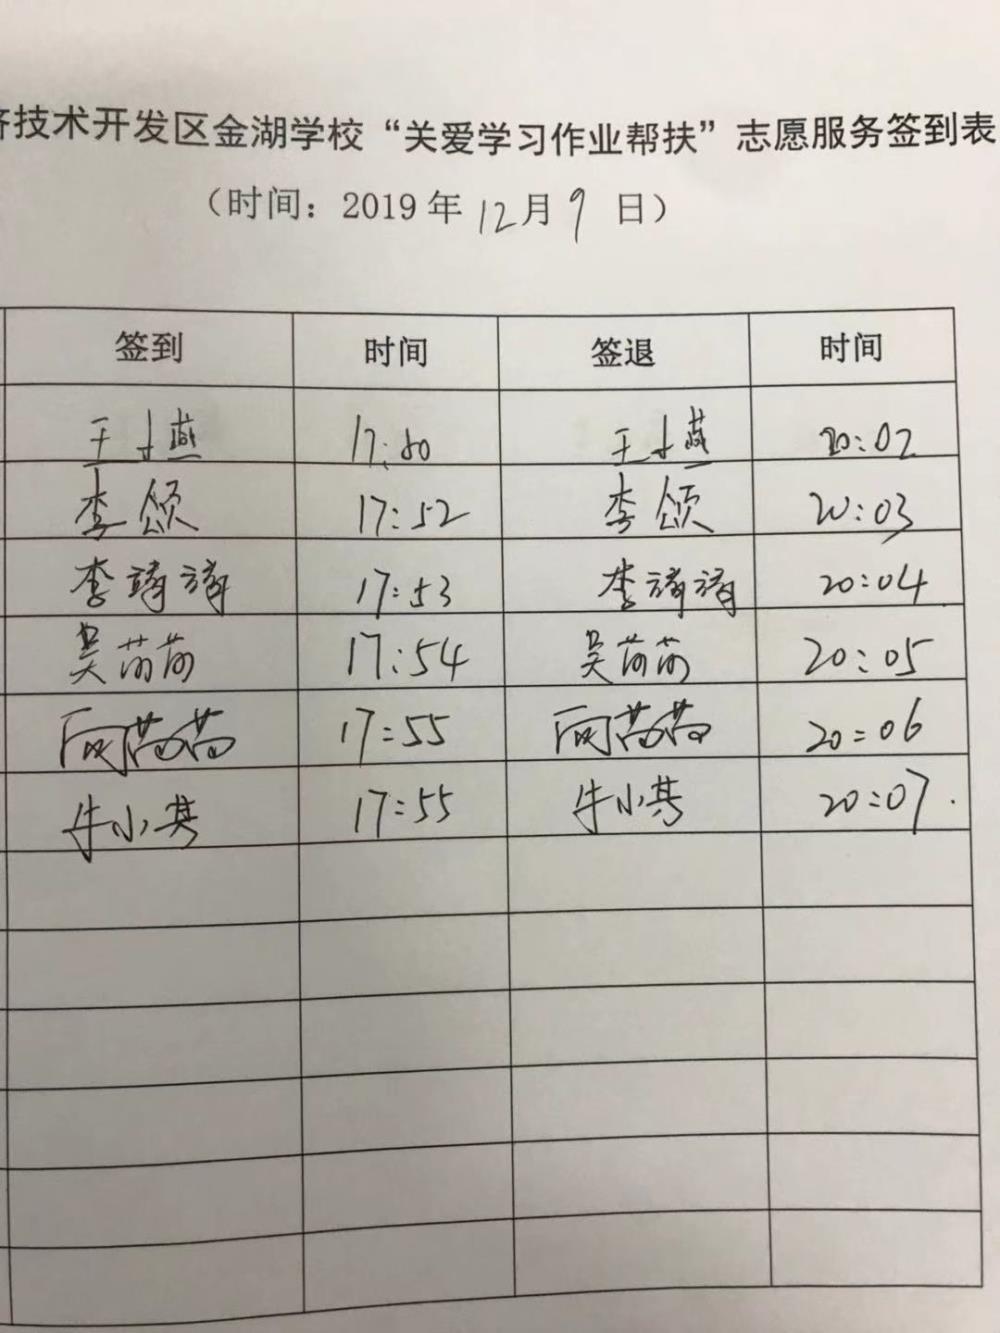 济技术开发区金湖学校“关爱学习作业帮扶”志愿服务签到表
（时间：2019年12月9日）
签到 时间 签退 时间
王小燕 17:50 王小燕 20:02
李颂 17:52 李颂 20:03
李 17:53 李 20:04
吴苪苪 17:54 吴苪苪 20:05
17:55 20:06
牛小其 17:55 牛小其 20:07.